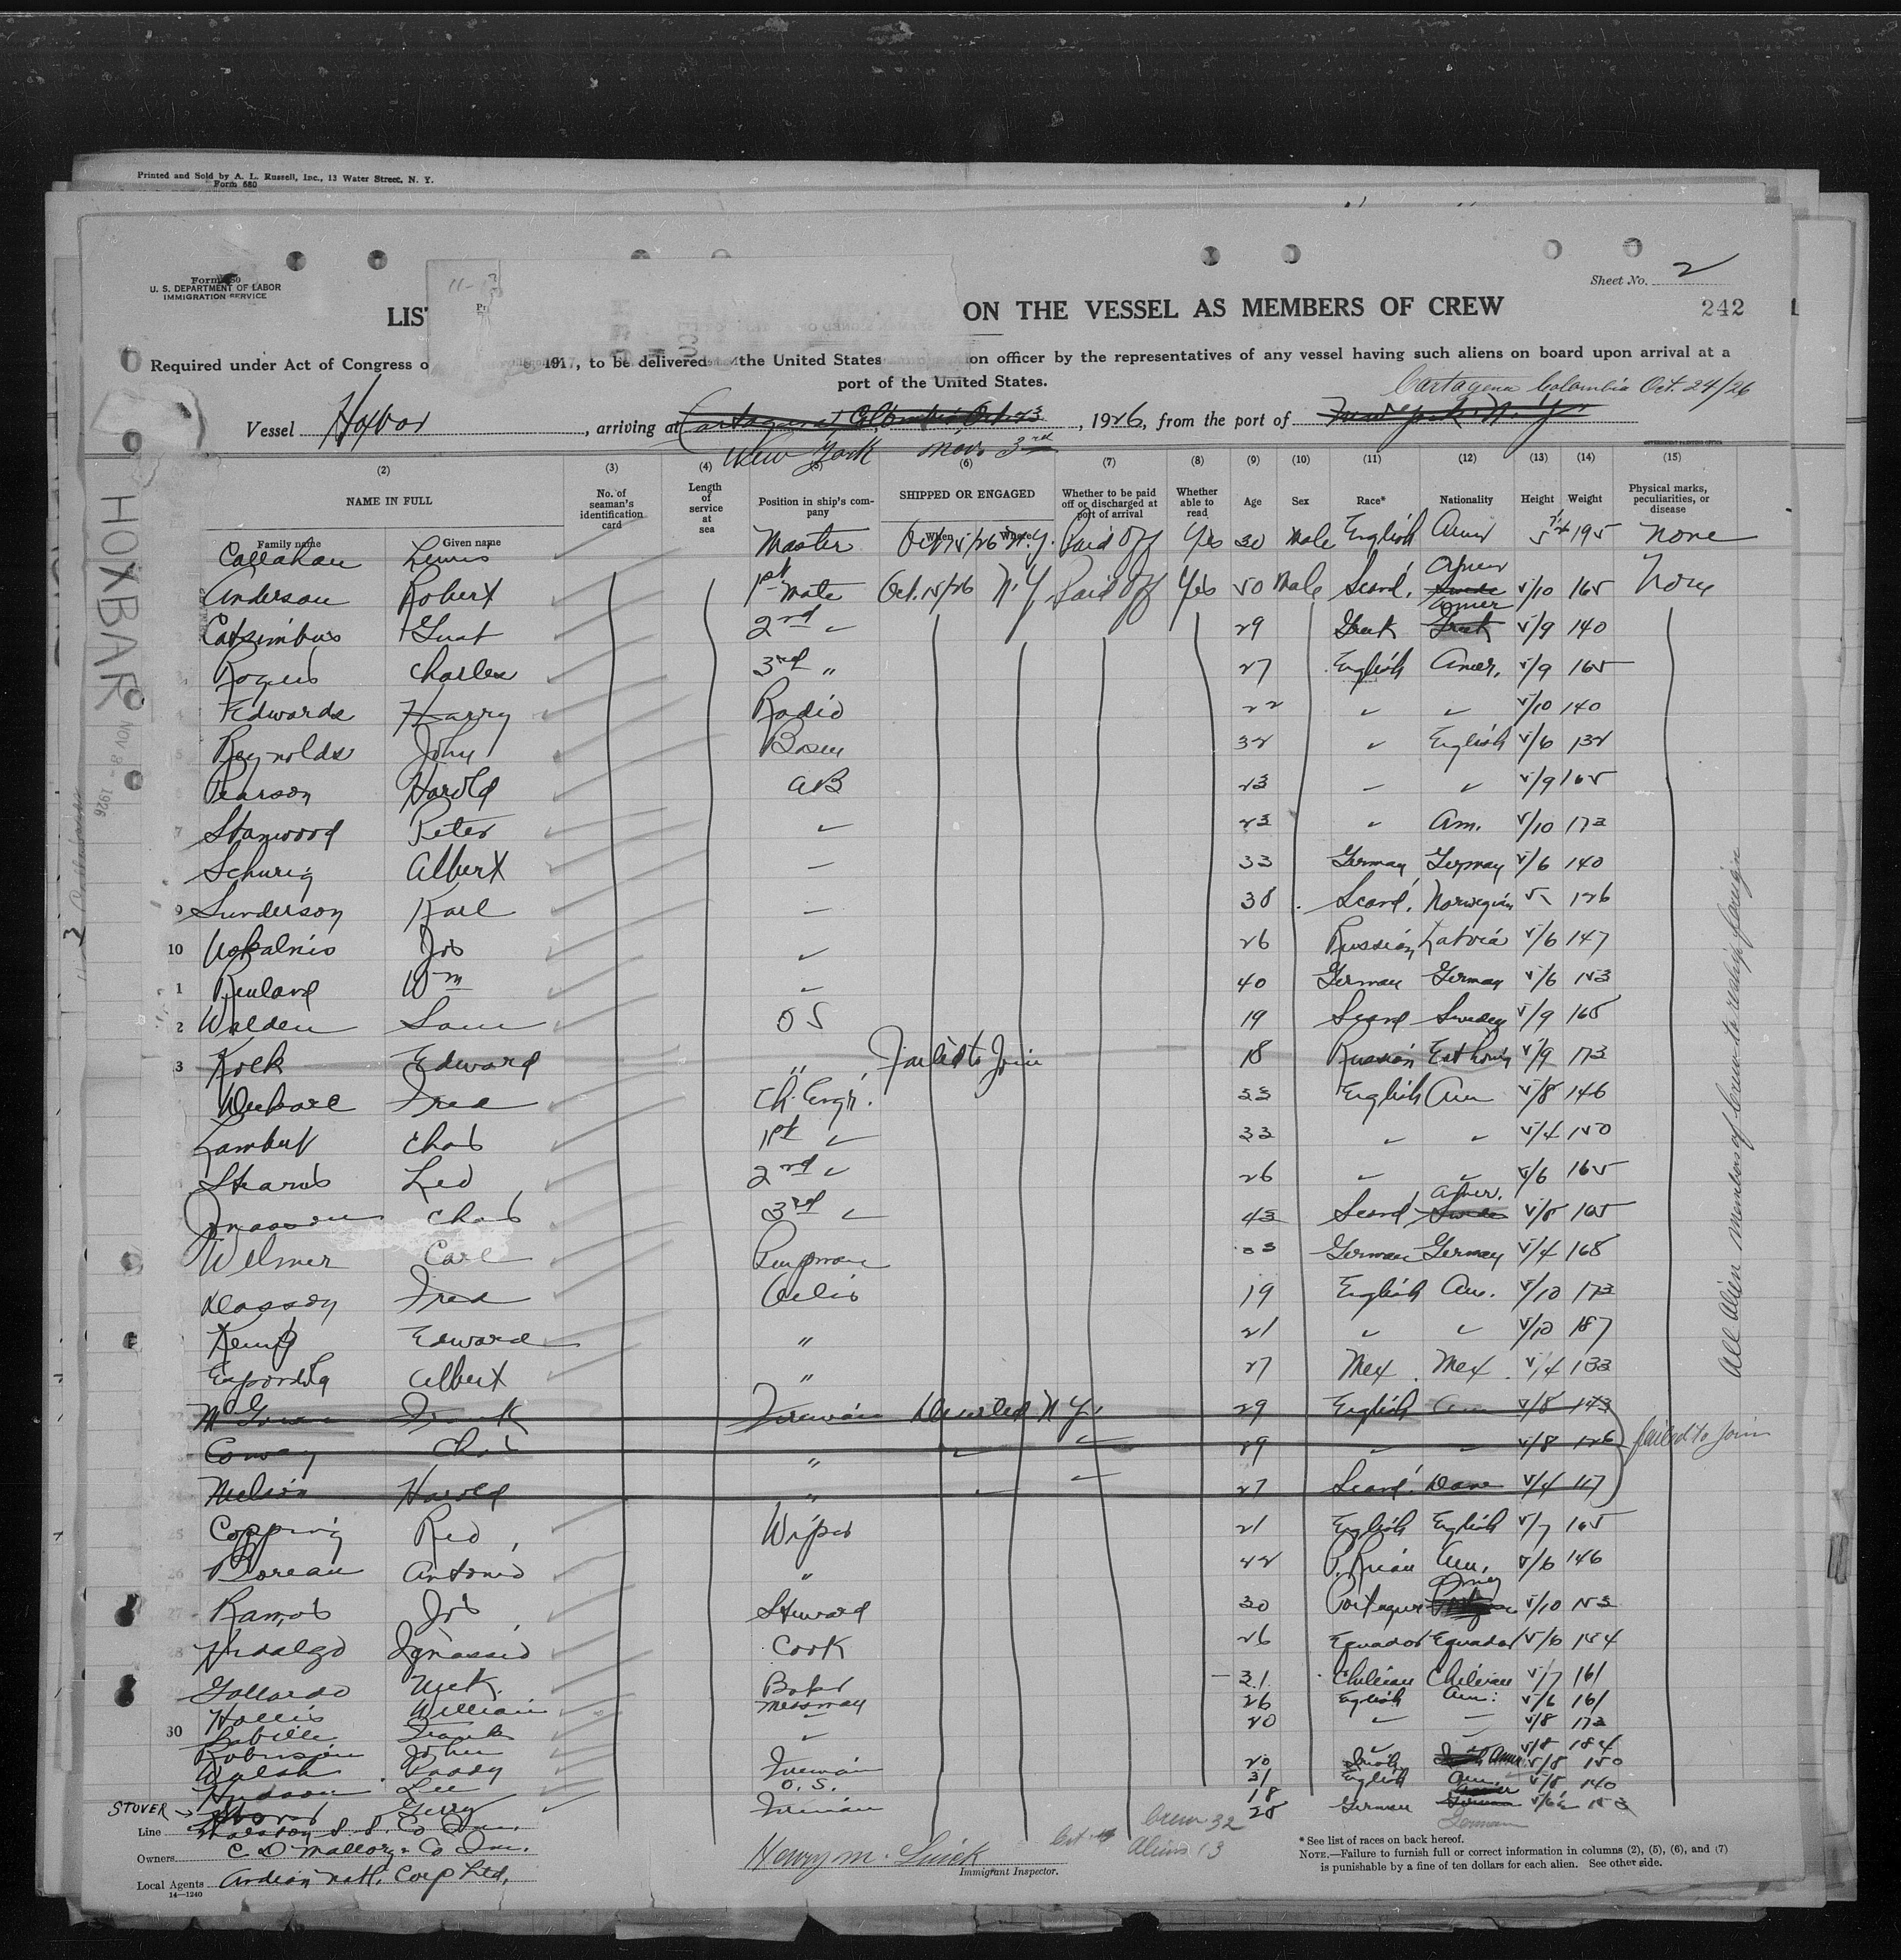 Printed and Sold by A. L. Russell, Inc., 13 Water Street, N. Y.
Form 680
U. S. DEPARTMENT OF LABOR
IMMIGRATION SERVICE
Sheet No. 2
11-3
LIST ON THE VESSEL AS MEMBERS OF CREW
242
Required under Act of Congress o 1917, to be delivered the United States on officer by the representatives of any vessel having such aliens on board upon arrival at a
port of the United States.
Cartagena Colombia Oct. 24/26
Vessel Hoxbar, arriving at Cartagena Colombia Oct 23, 1926, from the port of New York N.Y.
New York Nov. 3rd
HOXBAR NOV 3 - 1926
(2) (3) (4) (5) (6) (7) (8) (9) (10) (11) (12) (13) (14) (15)
NAME IN FULL No. of seaman's identification card Length of service at sea Position in ship's company SHIPPED OR ENGAGED Whether to be paid off or discharged at port of arrival Whether able to read Age Sex Race* Nationality Height Weight Physical marks, peculiarities, or disease
Family name Given name When Where
Callahan Lewis Master Oct 15/26 N.Y. Paid Off Yes 30 Male English Amer 195 None
Anderson Robert 1st Mate Oct. 15/26 N.Y. Paid Off Yes 50 Male Scand. Swede Amer 5/10 165 None
Gust 2nd " 29 Greek Greek Amer 5/9 140
Rogers Charles 3rd " 27 English Amer. 5/9 165
Edwards Harry Radio 22 " " 5/10 140
Reynolds John Bosun 32 " English 5/6 132
Pearson Harold AB 23 " " 5/9 165
7 Stanwood Peter " 23 " Am. 5/10 173
Schurig Albert " 33 German Germany 5/6 140
9 Sunderson Karl " 38 Scand. Norwegian 126
10 Uokalnis Jos " 26 Russian Latvia 5/6 147
1 Renland Wm " 40 German German 5/6 153
2 Walden Sam OS 19 Scand Sweden 5/9 165
3 Kolk Edward " Failed to Join 18 Russian Esthonia 5/9 173
Fred Ch. Engr. 33 English Am 5/8 146
Lambert Chas 1st " 33 " " 5/4 150
Stearns Leo 2nd " 26 " " 5/6 165
Chas 3rd " 43 Scand Swede Amer. 5/8 165
Welmer Carl Pumpman 33 German Germany 5/4 168
Fred Oiler 19 English Am. 5/10 173
Kemp Edward " 21 " " 5/10 187
Albert " 27 Mex. Mex. 5/4 133
McGowan Frank Fireman Deserted N.Y. 29 English Am 5/8 143
Conway Chas " " " 29 " " 5/8 126
Nelson Harold " " " 27 Scand. Dane 5/4 117
failed to join
25 Copping Reo Wiper 21 English English 5/7 165
26 Boreau Antonio " 42 P. Rican Am. 5/6 146
27 Ramos Jos Steward 30 Portuguese Amer 5/10 153
28 Hidalgo Ignassio Cook 26 Equador Equador 5/6 154
Gallardo Nick. Baker 31 Chilean Chilean 5/7 161
Hollis William Messman 26 English Am. 5/6 161
30 Frank " 20 " " 5/8 173
Robinson John " " 5/8 184
Walsh Paddy Fireman 20 Irish Amer 5/8 150
Hudson Lee O. S. 31 English Am. 5/8 140
STOVER → Stover Gerry Fireman 18 28 German German 153
German
All Alien Members of Crew to reship foreign
Line S. S. Co Inc.
Owners C D Mallory & Co Inc.
Local Agents Andian Natl. Corp Ltd.
14—1240
Henry M. Luick
Immigrant Inspector.
Crew 32
Aliens 13
* See list of races on back hereof.
NOTE.—Failure to furnish full or correct information in columns (2), (5), (6), and (7)
is punishable by a fine of ten dollars for each alien. See other side.